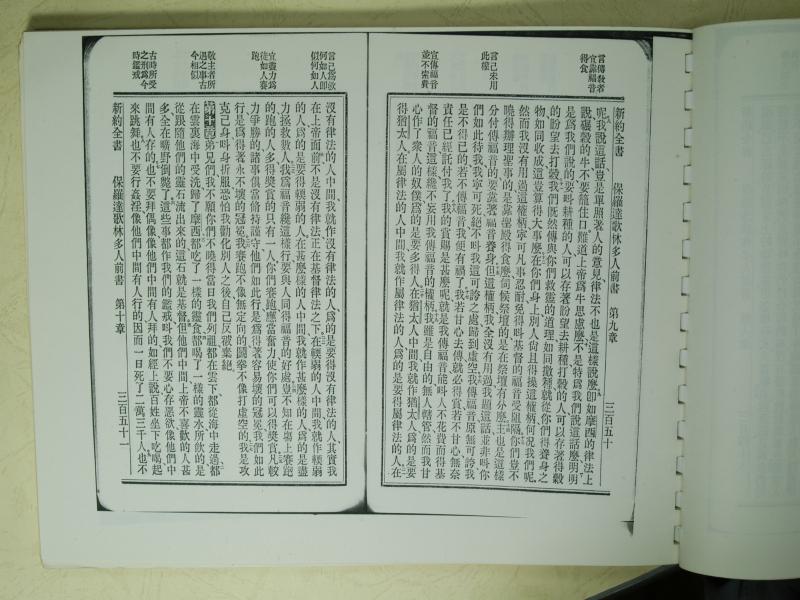 新約全書 保羅達歌林多人前書 第九章 三百五十
言傳敎者
宜靠福音
得食
言己未用
此權
宣傳福音
並不索費
呢、我說這話、豈是單照著人的意見、律法不也是這樣說麼、卽如摩西的律法上
說、碾穀的牛、不要籠住口、難道上帝爲牛思慮麼、不是特爲我們說這話麼、明明
是爲我們說的、要叫耕種的人、可以存著盼望去耕種、打穀的人、可以存著得穀
的盼望去打穀、我們旣然傳與你們救靈的道理、如同撒種、就從你們得養身之
物、如同收成、這豈算得大事麼、在你們身上、別人尙且得操這權柄、何況我們呢、
然而我沒有用過這權柄、寧可凡事忍耐、免得叫基督的福音受阻隔、你們豈不
曉得辦理聖事的、是靠聖殿得食麼、伺候祭壇的、是在祭壇有分麼、主也是這樣
分付、傳福音的、要靠著福音養身、但這權柄、我全沒有用過、我過這話、並非叫你
們如此待我、我寧可死、絕不叫我這可誇之處歸到虛空、我傳福音、原無可誇、我
是不得已的、若不傳福音、我便有禍了、我若甘心去傳、就必得賞、若不甘心、無奈
責任已經託付我了、我的賞賜是甚麼呢、就是我傳福音、能叫人不花費而得基
督的福音、這樣纔不妄用我傳福音的權柄、我雖是自由的、無人轄管、然而我甘
心作了衆人的奴僕、爲的是要多得人、在猶太人中間、我就作猶太人、爲的是要
得猶太人、在屬律法的人中間、我就作屬律法的人、爲的是要得屬律法的人、在
言己爲欲
何如人卽
似何如人
宜盡力爲
徒如人賽
跑
敬主者所
遇之事古
今相似
古時所受
之刑爲今
時鑑戒
沒有律法的人中間、我就作沒有律法的人、爲的是要得沒有律法的人、其實我
在上帝面前、不是沒有律法、正在基督律法之下、在輭弱的人中間、我就作輭弱
的人、爲的是要得輭弱的人、在甚麼樣的人中間、我就作甚麼樣的人、爲的是盡
力拯救數人、我爲福音、纔這樣行、要與人同得福音的好處、豈不知在場上賽跑
的、跑的人多、得獎賞的只有一人、你們賽跑、應當奮力、使你們可以得獎賞、凡較
力爭勝的、諸事俱當備持謹守、他們如此行、是爲得著容易壞的冠冕、我們如此
行、是爲得著永不壞的冠冕、我賽跑、不像無定向的、鬬拳、不像打虛空的、我是攻
克己身、叫身折服、恐怕我勸化別人之後、自己反被棄絕
弟兄們、我不願你們不曉得、當日我們列祖都在雲下、都從海中走過、都
在雲裏海中受洗、歸了摩西、都吃了一樣的靈食、都喝了一樣的靈水、所飲的是
從跟隨他們的靈石流出來的、這石就是基督、但他們中間、上帝不喜歡的人甚
多、全在曠野倒斃了、這些事、都作我們的鑑戒、叫我們不要心存惡欲、像他們中
間有人存的、也不要拜偶像、像他們中間有人拜的、如經上說、百姓坐下吃喝、起
來跳舞、也不要行姦淫、像他們中間有人行的、因而一日死了二萬三千人、也不
新約全書 保羅達歌林多人前書 第十章 三百五十一